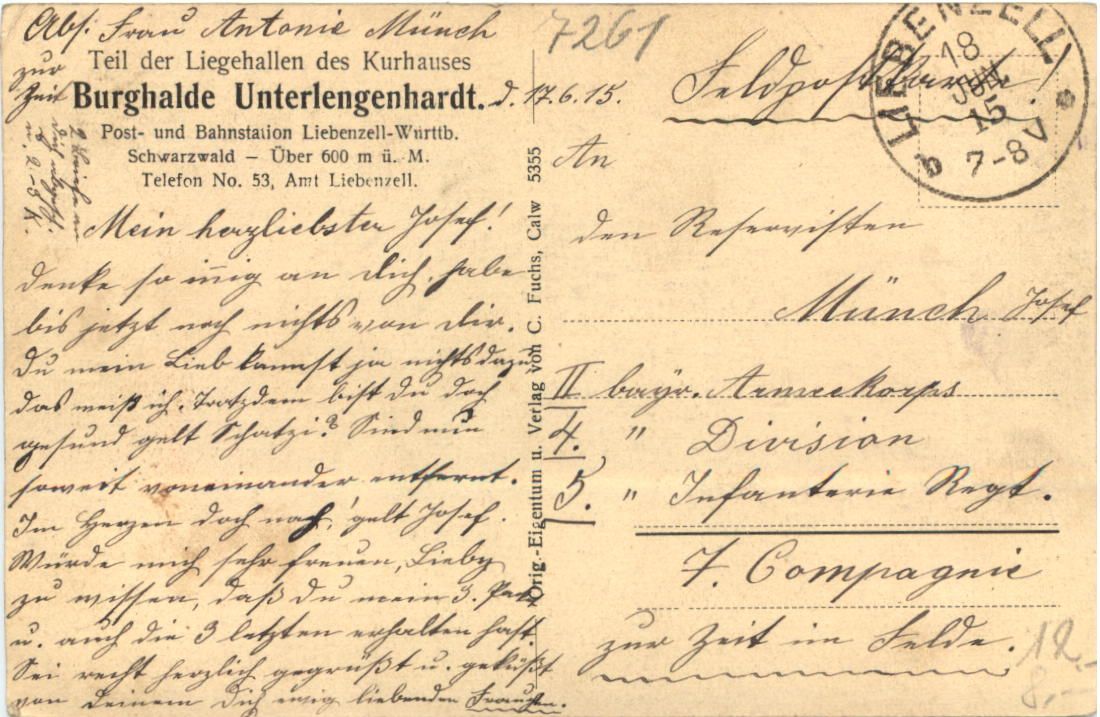 Abs: Frau Antonie Münch
zur
Zeit
Teil der Liegehallen des Kurhauses
Burghalde Unterlengenhardt. d. 17.6.15.
Post- und Bahnstation Liebenzell-Württb.
Schwarzwald – Über 600 m ü. M.
Telefon No. 53, Amt Liebenzell.
Mein herzliebster Josef!
denke so innig an dich, habe
bis jetzt noch nichts von dir.
Du mein Lieb kannst ja nichts dazu
das weiß ich. Trotzdem bist du doch
gesund gelt Schatzi? Sind nun
soweit voneinander entfernt.
Im Herzen doch nah, gelt Josef.
Würde mich sehr freuen, Lieby
zu wissen, daß du mein 3. Pak.
u. auch die 3 letzten erhalten hast.
Sei recht herzlich gegrüßt u. geküßt
von Deinem dich ewig liebenden Frauchen.
Orig.-Eigentum u. Verlag von C. Fuchs, Calw 5355
7261
Feldpostkarte!
LIEBENZELL
18
JUN
15
7-8 V
b
An
den Reservisten
Münch Josef
II bayr. Armeekorps
4. " Division
5. " Infanterie Regt.
7. Compagnie
zur Zeit im Felde.
12.-
8,-